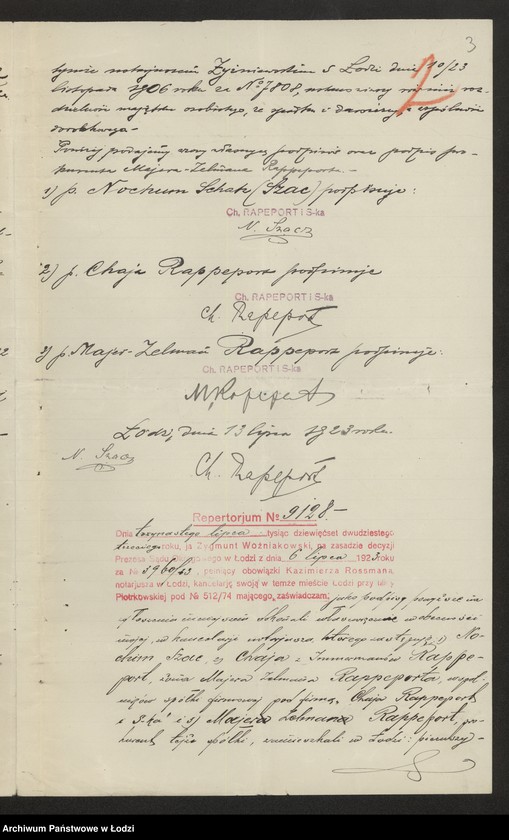 3
2
tymże notarjuszem Żyźniewskim w Łodzi dnia 10/23
listopada 1906 roku za № 7808,
majątku osobistego, ze spółki i
Poniżej podajemy wzory podpisów oraz podpis pro-
kurenta Majera-Zelmana Rappeporta. -
1) p. Nochum Schatz (Szac) podpisuje:
Ch. RAPEPORT i S-ka
N. Szacz
2) p. Chaja Rappeport podpisuje
Ch. RAPEPORT i S-ka
Ch. Rapeport
3) p. Majer-Zelman Rappeport podpisuje:
Ch. RAPEPORT i S-ka
M. Rapeport
Łodzi, dnia 13 lipca 1923 roku.
N. Szacz
Ch. Rapeport
Repertorjum № 9128 -
Dnia trzynastego lipca tysiąc dziewięćset dwudziestego
trzeciego roku, ja Zygmunt Woźniakowski, na zasadzie decyzji
Prezesa Sądu Okręgowego w Łodzi z dnia 6 lipca 1923 roku
za № 5960/23, pełniący obowiązki Kazimierza Rossmana,
notarjusza w Łodzi, kancelarję swoją w temże mieście Łodzi przy ulicy
Piotrkowskiej pod № 512/74 mającego, zaświadczam, jako podpisy powyższe na
własnoręcznie w obecności
mojej, w kancelarji notarjusza, którego zastępuję, 1) No-
chim Szac, 2) Chaja z Rappe-
port, żona Majera Zelmana Rappeporta, wspól-
spółki firmowej pod firmą „Chaja Rappeport
i S-ka” i 3) Majera Zelmana Rappeport, pro-
kurent tejże spółki, zamieszkali w Łodzi: pierwszy -
Archiwum Państwowe w Łodzi